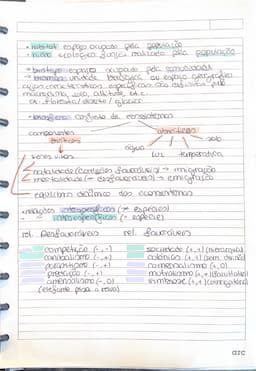 • habitat espaço ocupado pela população
• nicho ecológico função realizada pela população
• biótopo espaço ocupado pela comunidade
• bioma unidade biológica ou espaço geográfico
cujas características específicas são definidas pelo
macroclima, solo, altitude, etc.
ex: floresta/deserto/glacier
• biosfera conjunto de ecossistemas
componentes
bióticos
abióticos
seres vivos
água
luz
temperatura
solo
natalidade (condições favoráveis) → imigração
mortalidade (→ desfavoráveis) → emigração
equilíbrio dinâmico dos ecossistemas
• relações interespecíficas (≠ espécies)
intraespecíficas (= espécie)
rel. Desfavoráveis
rel. favoráveis
competição (-,-)
sociedade (+,+) (hierarquia)
canibalismo (-,+)
colônias (+,+) (sem divisão)
parasitismo (-,+)
comensalismo (+,0)
predação (-,+)
mutualismo (+,+) (facultativo)
amensalismo (-,0)
simbiose (+,+) (obrigatória)
(elefante pisa a relva)
arc